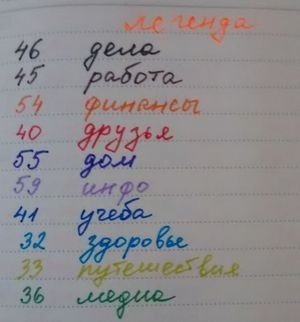 легенда
46 дела
45 работа
54 финансы
40 друзья
55 дом
59 инфо
41 учеба
32 здоровье
33 путешествия
36 медиа